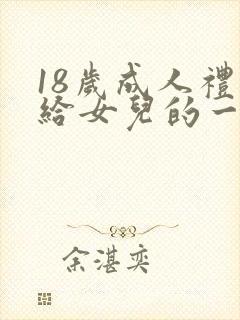 18歲成人禮
給女兒的一
余湛奕